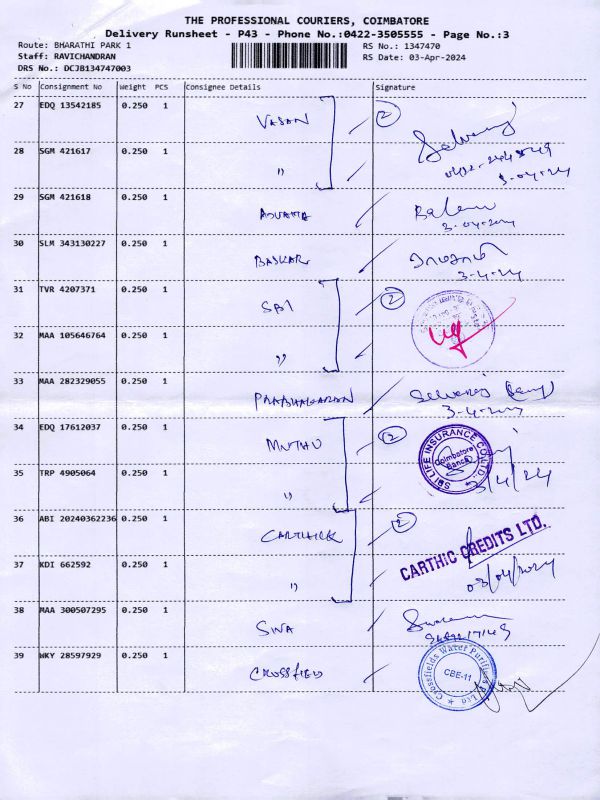 THE PROFESSIONAL COURIERS, COIMBATORE
Delivery Runsheet - P43 - Phone No.:0422-3505555 - Page No.:3
Route: BHARATHI PARK 1 RS No.: 1347470
Staff: RAVICHANDRAN RS Date: 03-Apr-2024
DRS No.: DCJB134747003
S No Consignment No Weight PCS Consignee Details Signature
27 EDQ 13542185 0.250 1 VASAN 2
28 SGM 421617 0.250 1 "
3-04-24
29 SGM 421618 0.250 1
3-04-2024
30 SLM 343130227 0.250 1 BASKAR
3-4-24
31 TVR 4207371 0.250 1 SBI 2
32 MAA 105646764 0.250 1 "
33 MAA 282329055 0.250 1 PRABHAKARAN
34 EDQ 17612037 0.250 1 MUTHU 2
SBI LIFE INSURANCE CO. LTD.
Coimbatore
Branch
35 TRP 4905064 0.250 1 "
3/4/24
36 ABI 20240362236 0.250 1 CARTHICK 2
CARTHIC CREDITS LTD.
37 KDI 662592 0.250 1 "
03/04/2024
38 MAA 300507295 0.250 1 SIVA
39 WKY 28597929 0.250 1 CROSSFIELD
Crossfields Water Purifiers P Ltd
CBE-11